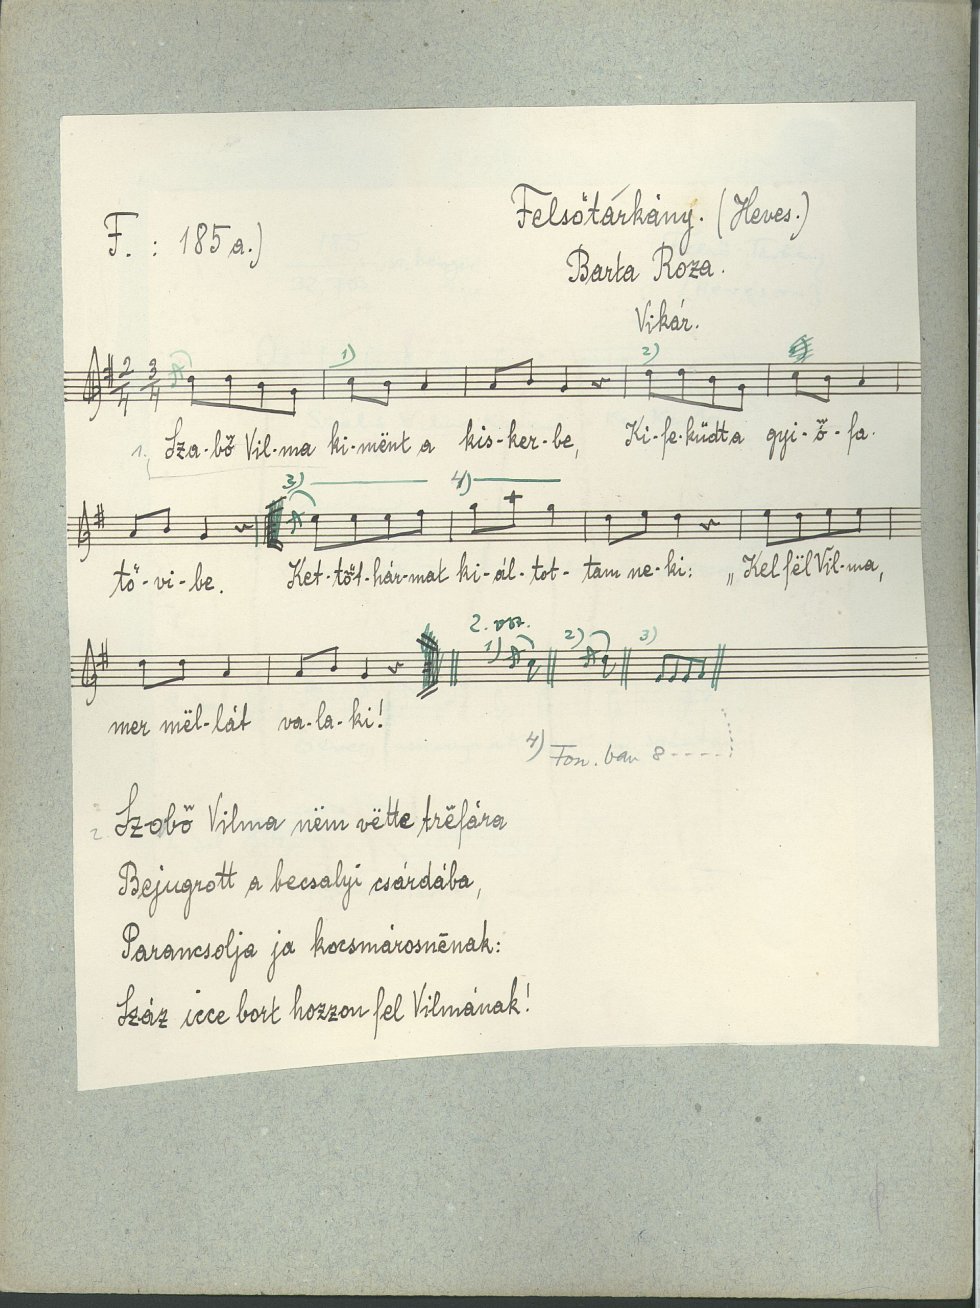 F. : 185 a.)
Felsőtárkány. (Heves.)
Barta Roza.
Vikár.
2/4 3/4
1) 2)
1. Sza-bő Vil-ma ki-mënt a kis-ker-be, Ki-fe-küdt a gyi-ő-fa-
3) 4)
tő-vi-be. Ket-tőt-hár-mat ki-ál-tot-tam ne-ki: „Kel fël Vil-ma,
2. vsz.
1) 2) 3)
mer mël-lát va-la-ki!
4) Fon. ban 8
2. Szobő Vilma nëm vëtte trēfára
Bejugrott a becsalyi csárdába,
Parancsolja ja kocsmárosnēnak:
Száz icce bort hozzon fel Vilmának!